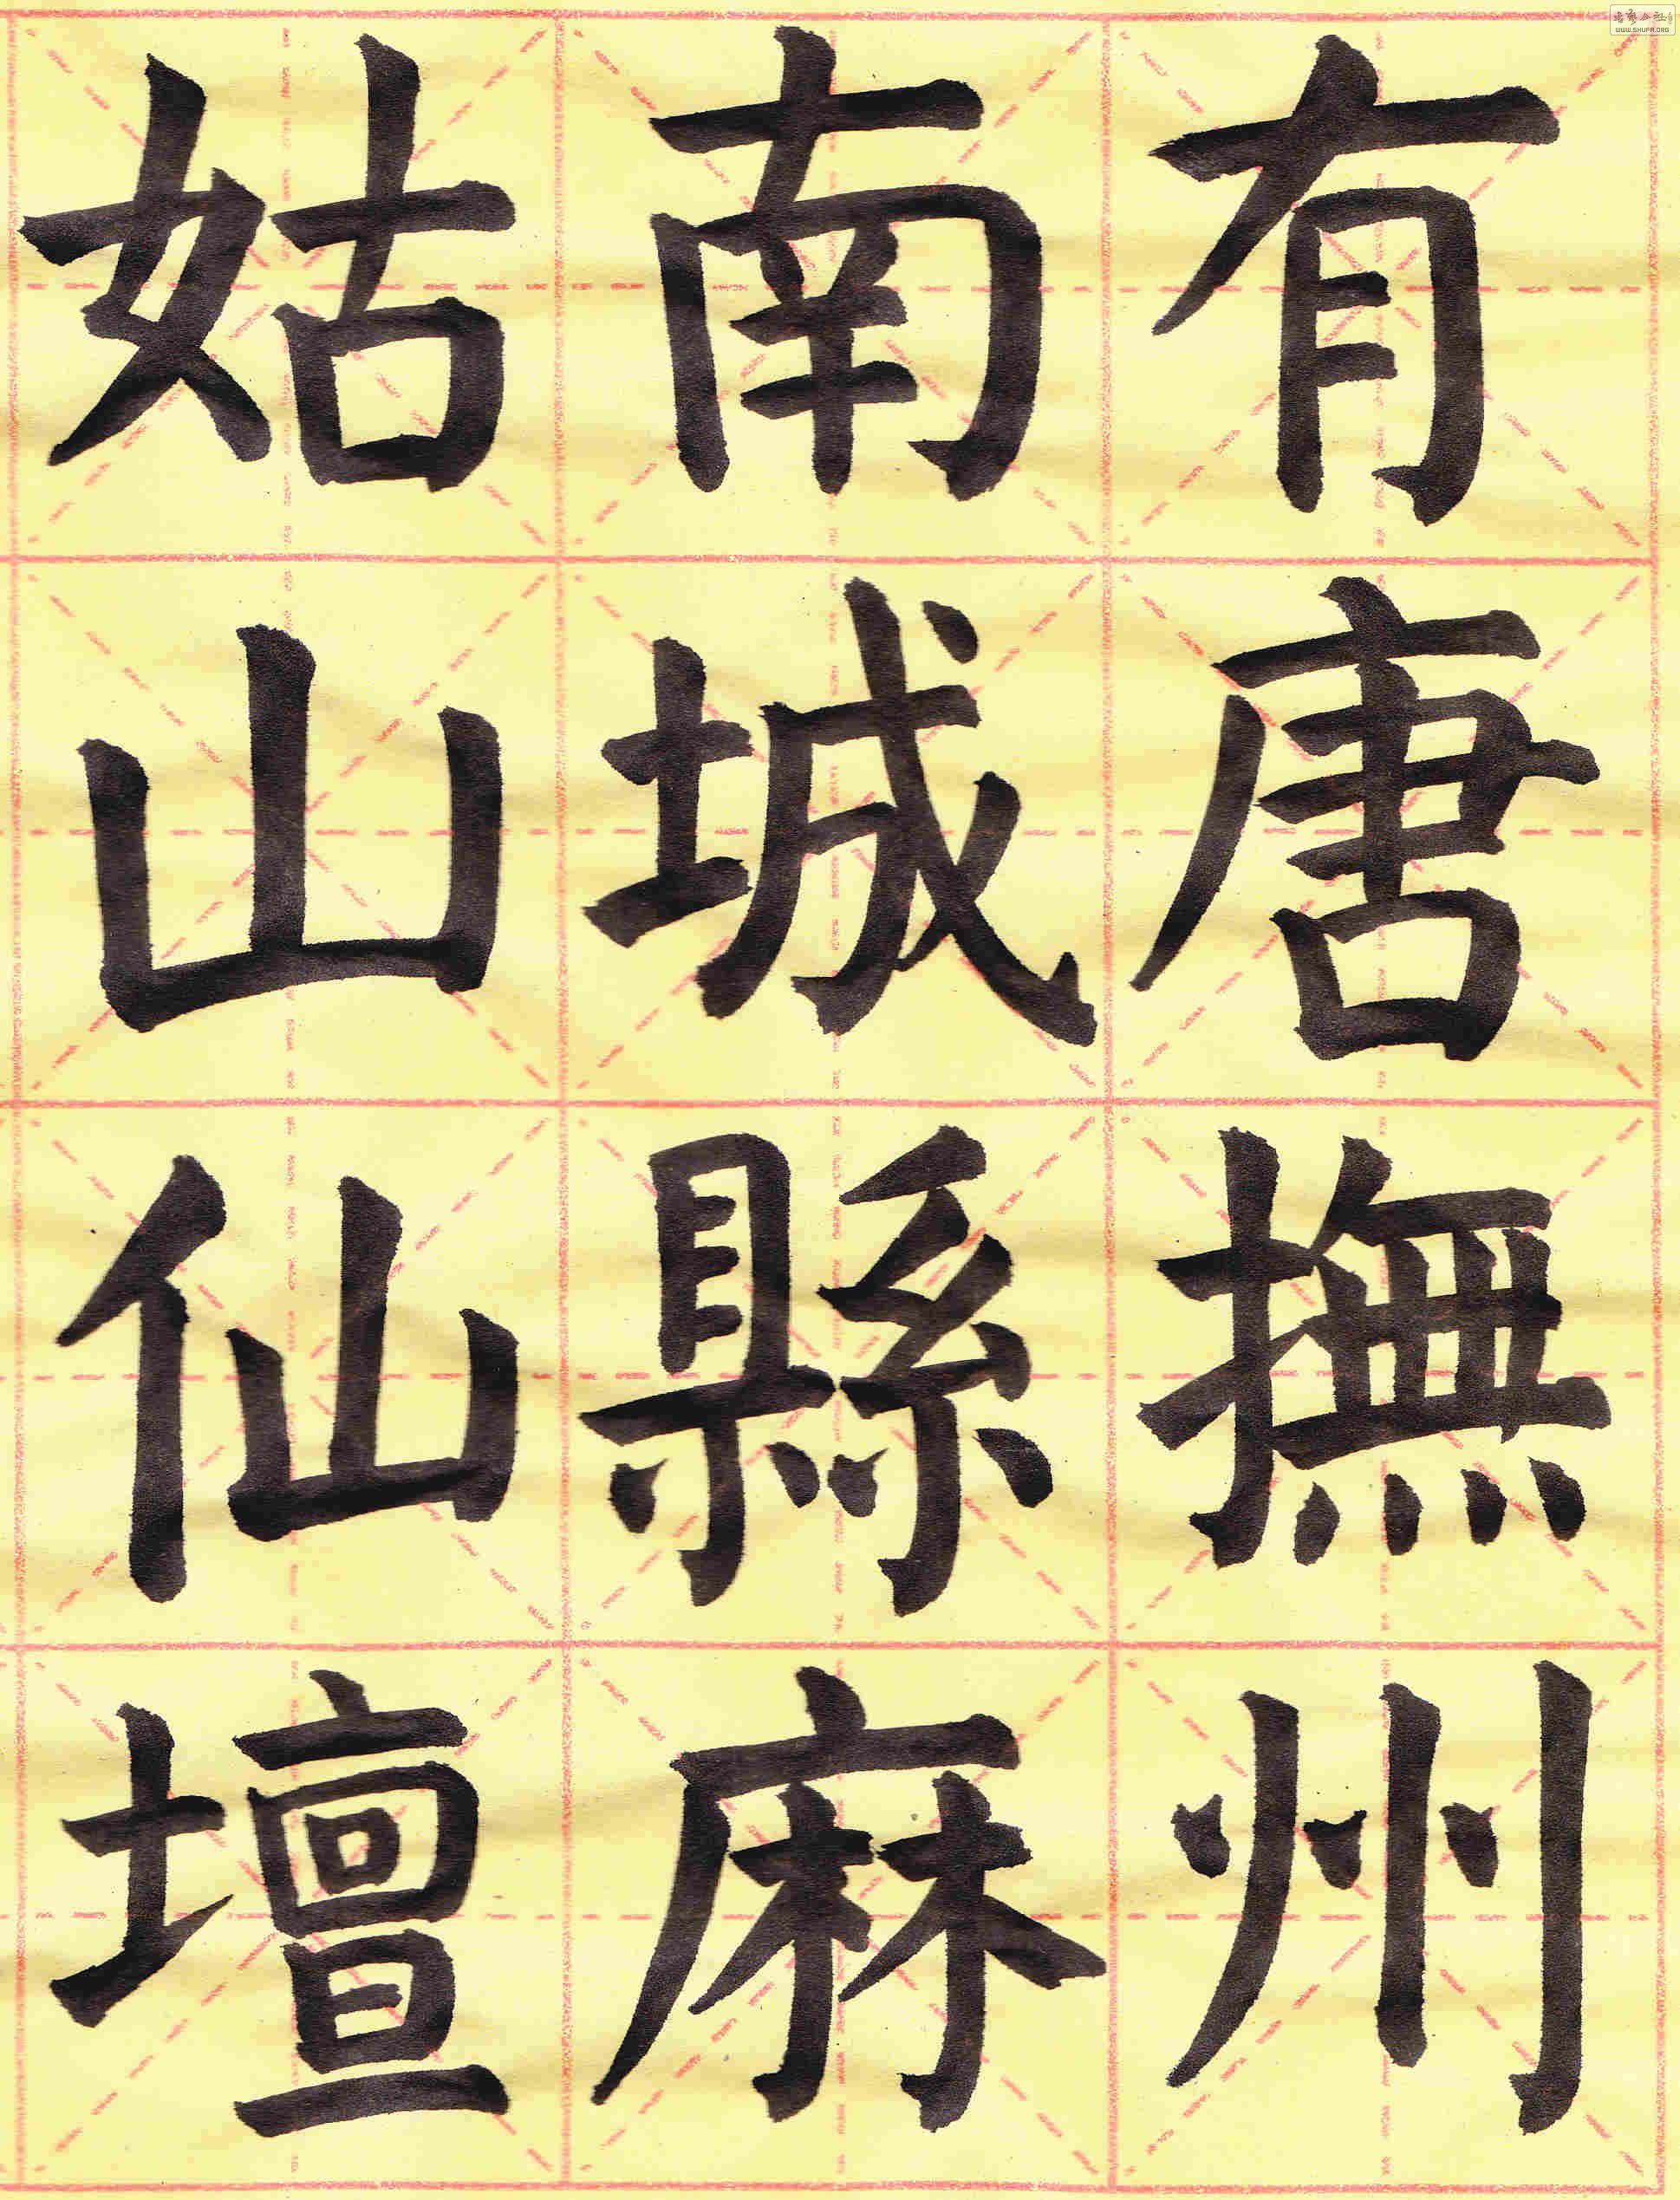 有唐撫州
南城縣麻
姑山仙壇
WWW.SHUFA.ORG